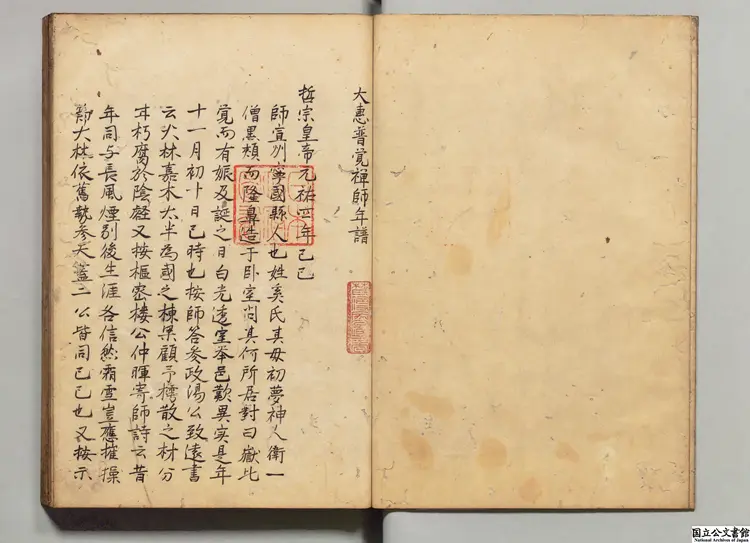 大惠普覚禅師年譜
哲宗皇帝元祐四年己巳
師宣州寧國縣人也姓奚氏其母初夢神人衛一
僧黒頰而隆鼻造于卧室問其何所居對曰嶽北
覚而有娠及誕之日白光透室挙邑歎異実是年
十一月初十日巳時也按師答参政湯公致遠書
云火林嘉木太半為國之棟梁顧予樗散之材分
甘朽腐於陰壑又按樞密楼公仲暉寄師詩云昔
年同与長風煙別後生涯各信然霜雪豈應摧操
節大椿依舊勢参天蓋二公皆同己巳也又按示
国立公文書館
National Archives of Japan